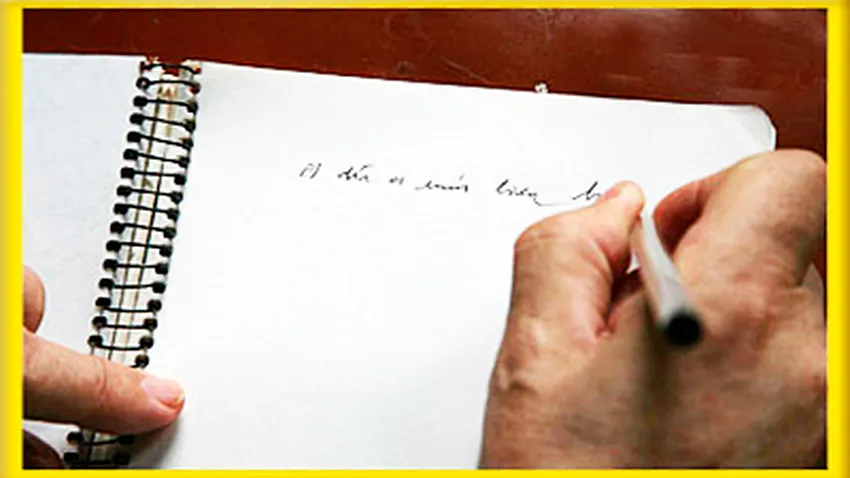 El día es más bien